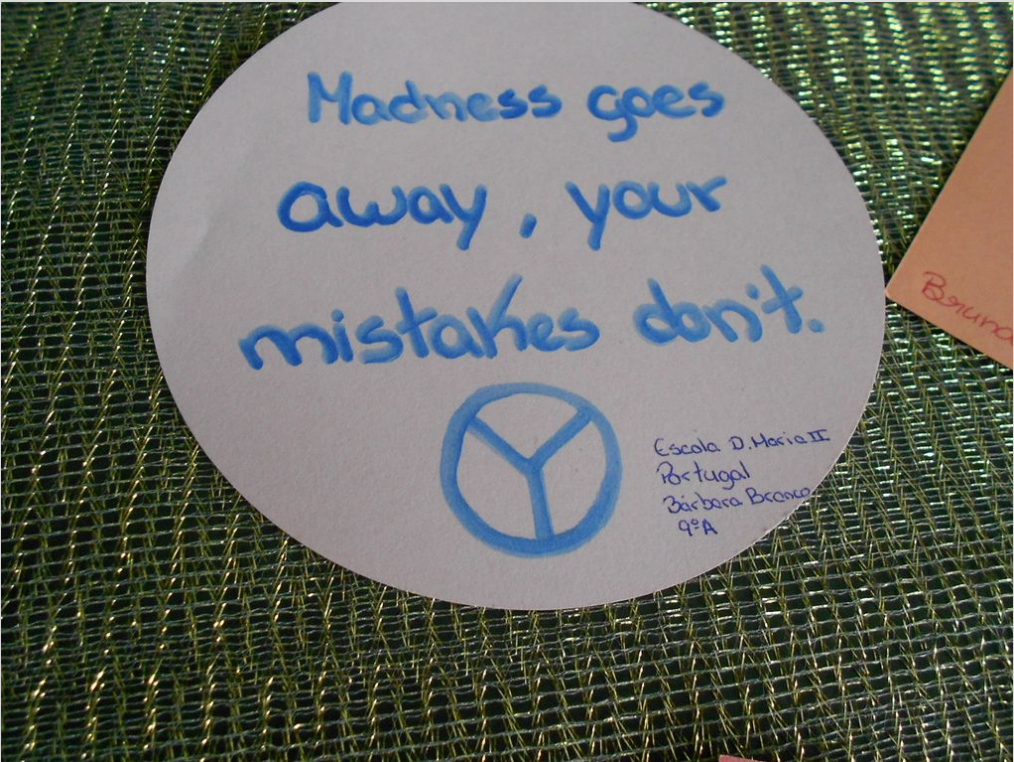 Madness goes
away, your
mistakes don't.
Escola D. Maria II
Portugal
Bárbara Branco
9ºA